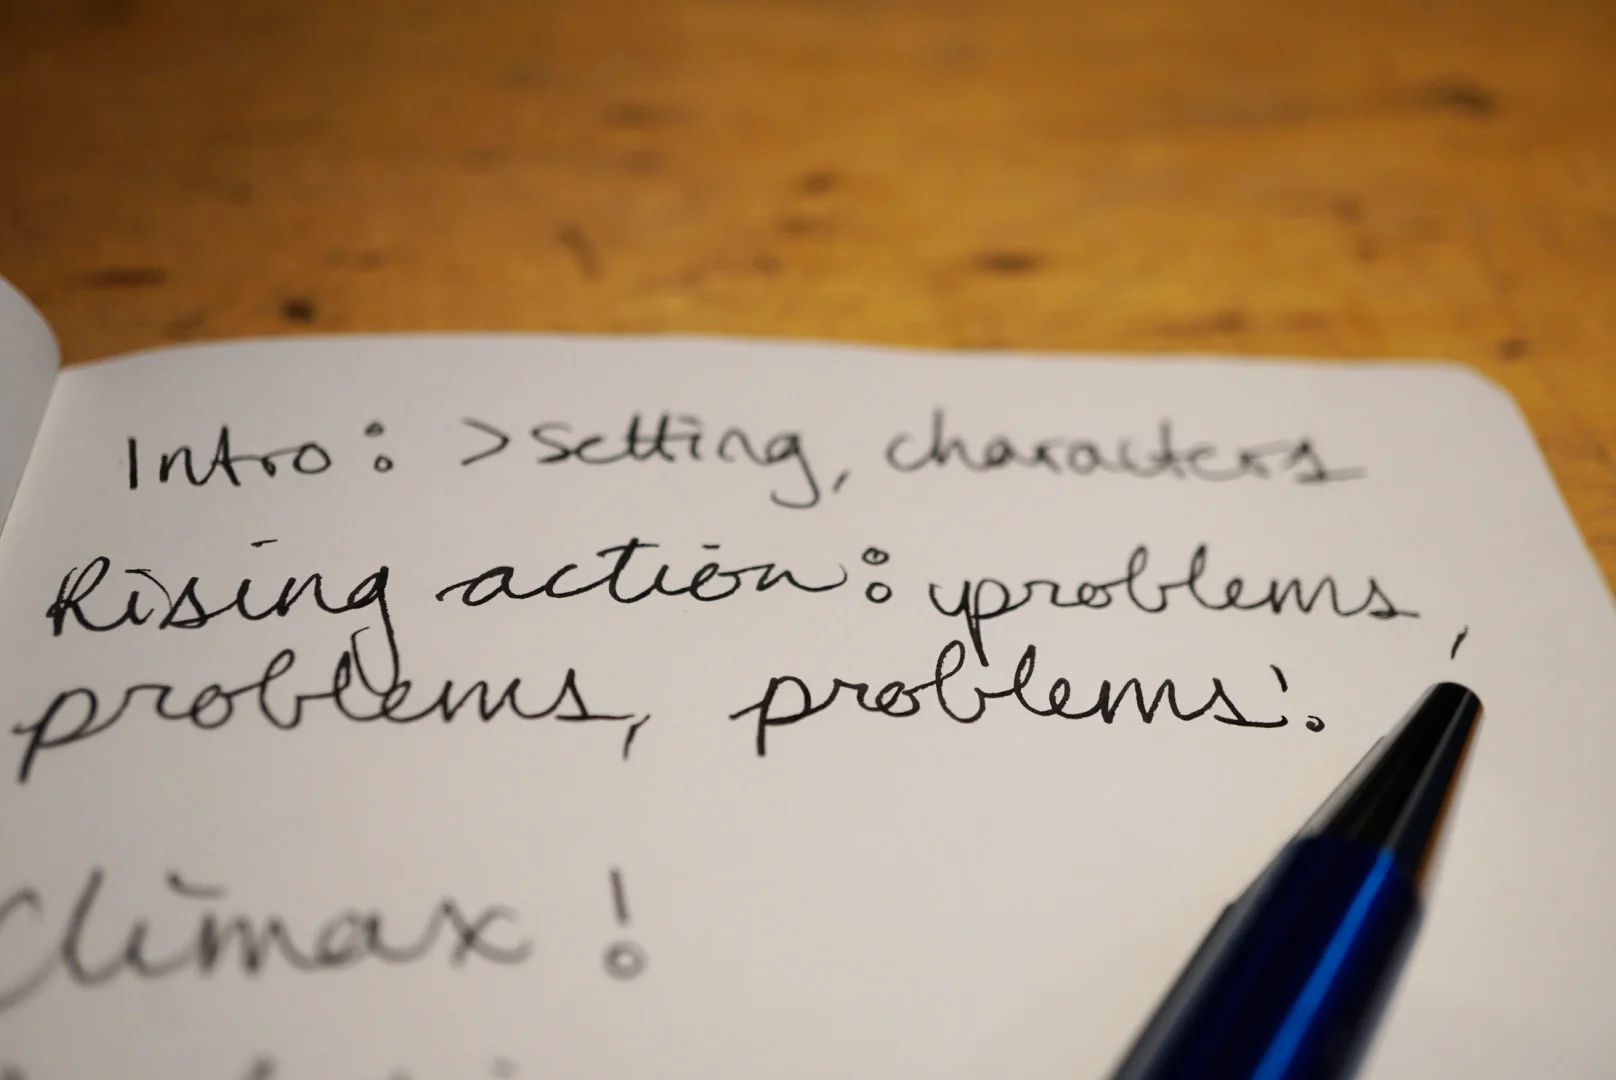 Intro: >setting, characters
Rising action: problems,
problems, problems!
Climax!